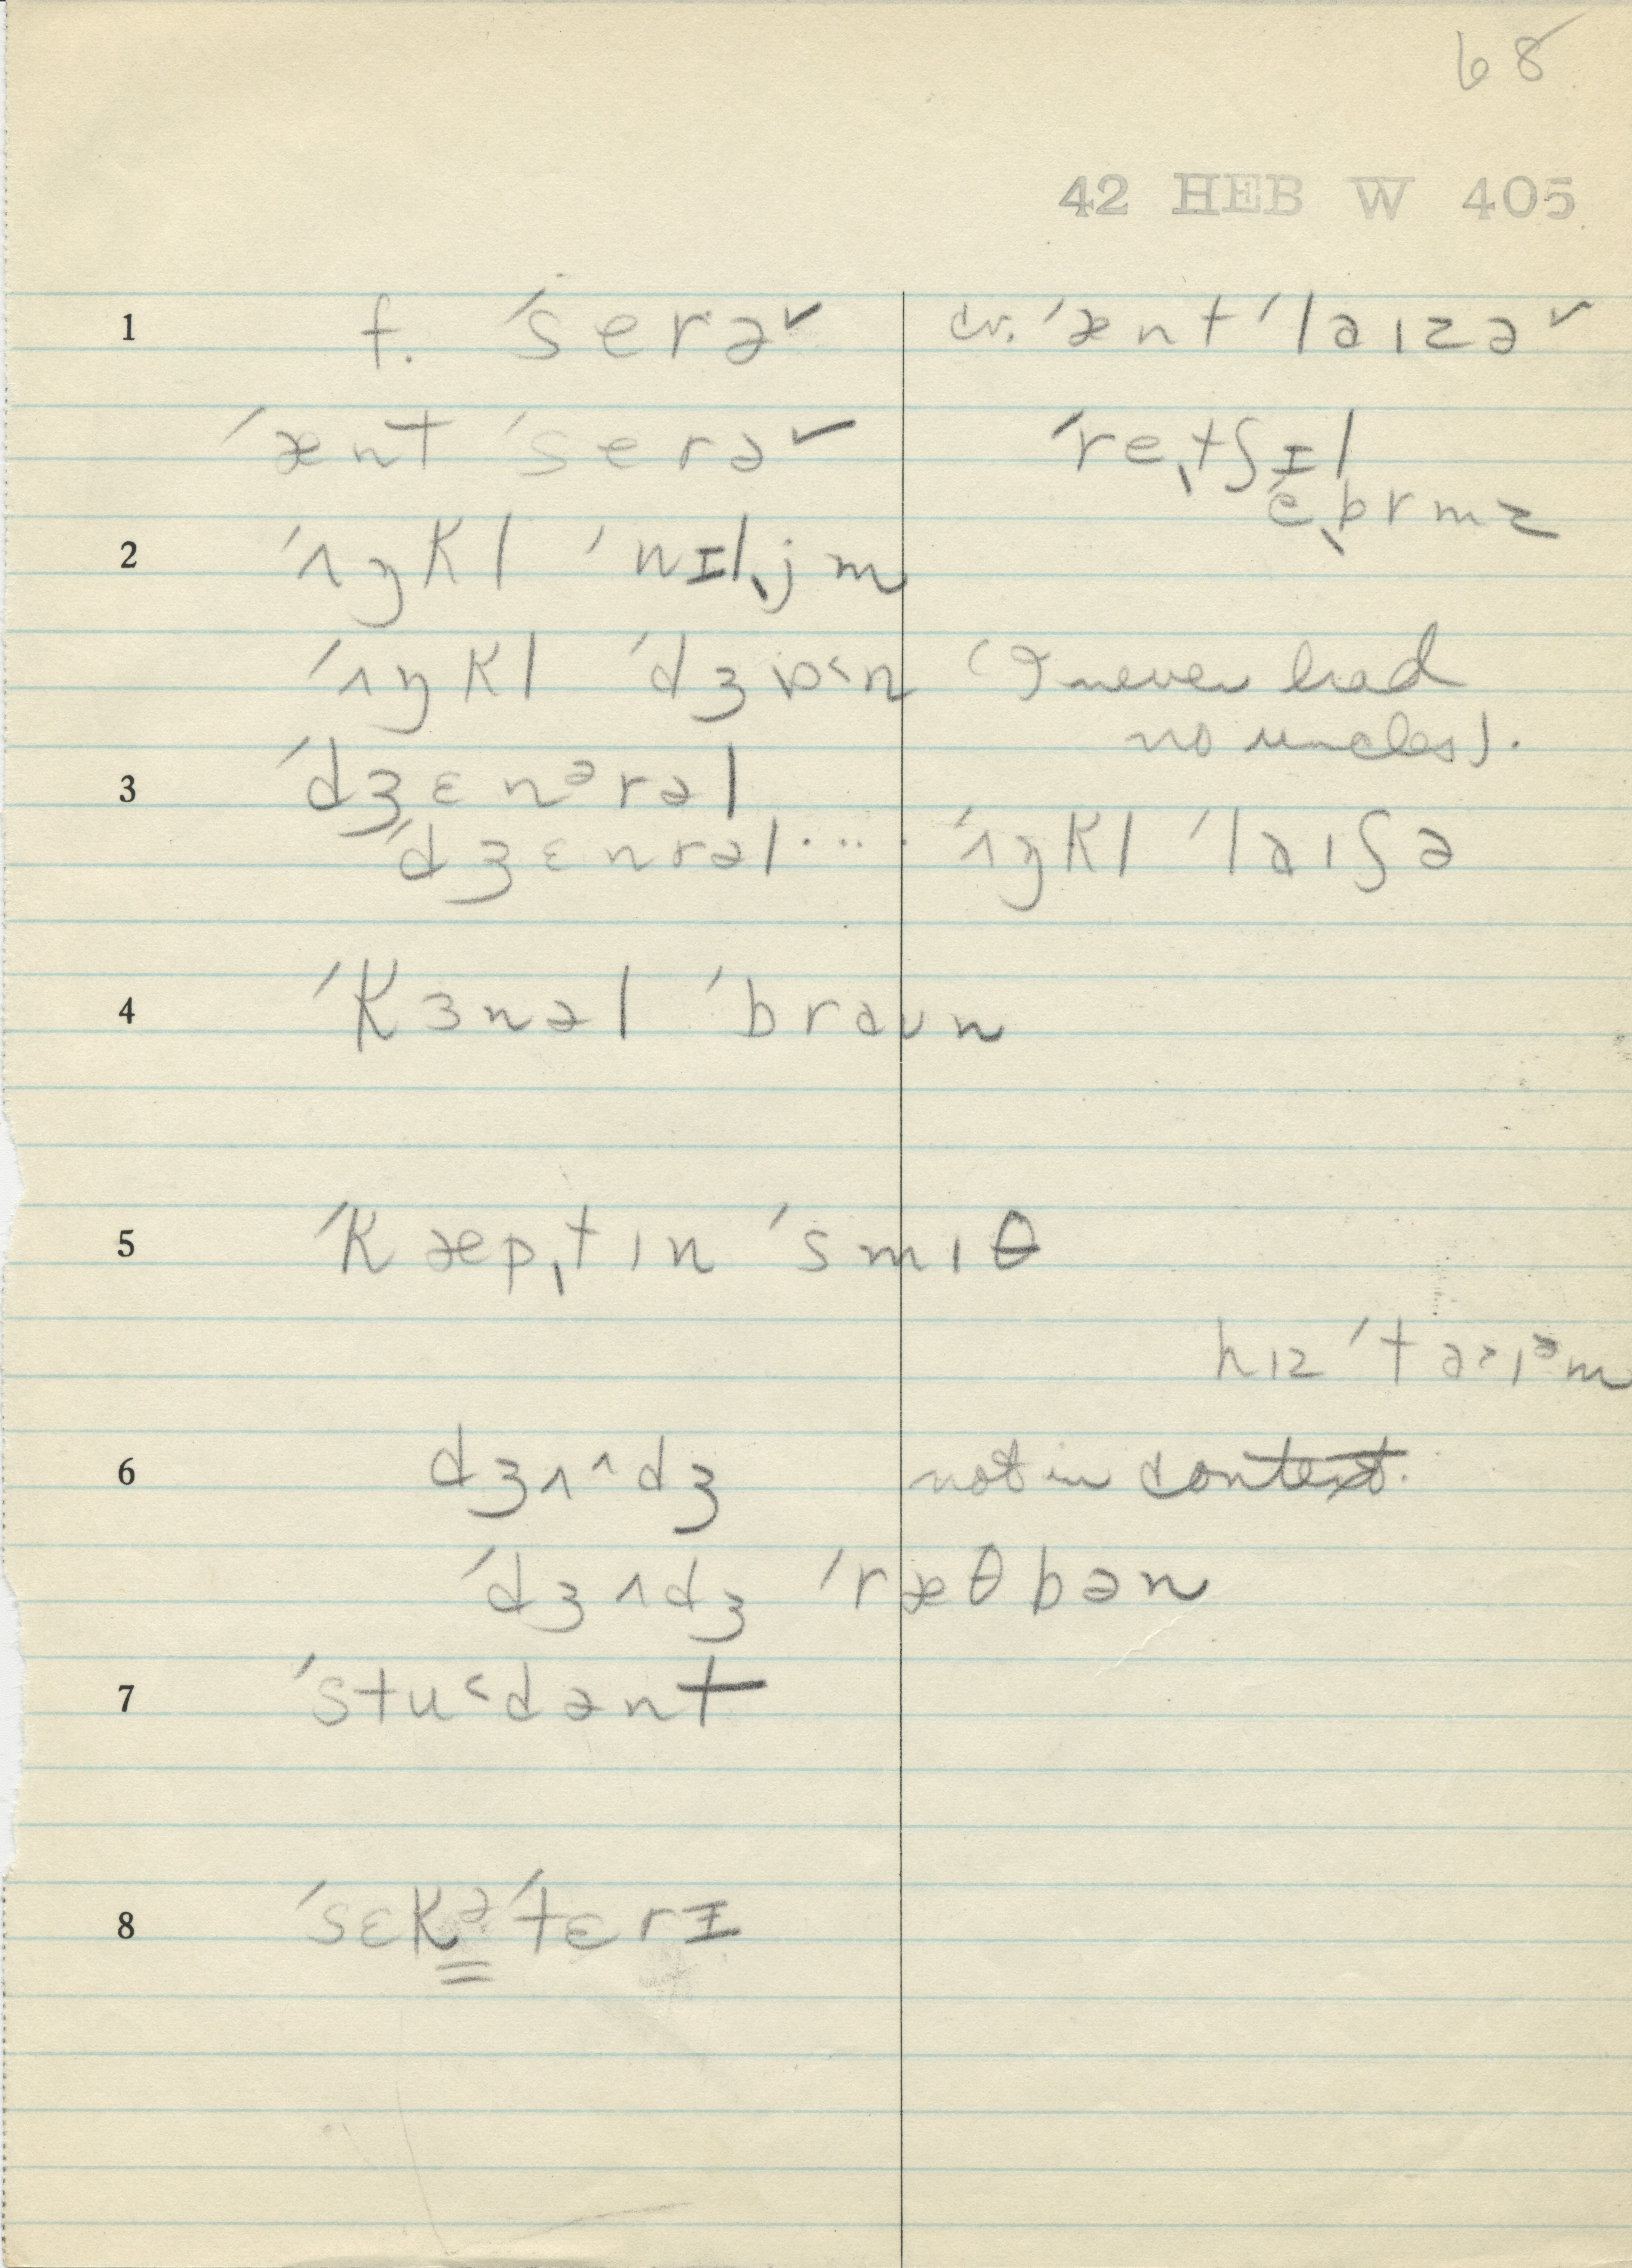 68
42 HEB W 405
1 f. ˈserə˅ cv. ˈænt ˈlaɪzə˅
ˈænt ˈserə˅ ˈreˌtʃɪl
ˈeˌbrmz
2 ˈʌŋkl ˈwɪlˌjm
ˈʌŋkl ˈdʒɒ˂n (I never had
no uncles).
3 ˈdʒɛnᵊrəl
ˈdʒɛnrəl.... ˈʌŋkl ˈlaɪʃə
4 ˈkɜnəl ˈbraʊn
5 ˈkæpˌtɪn ˈsmɪθ
6 dʒʌ^dʒ not in context.
ˈdʒʌdʒ ˈræθbən
7 ˈstu˂dənt
8 ˈsɛkᵊˈtɛrɪ